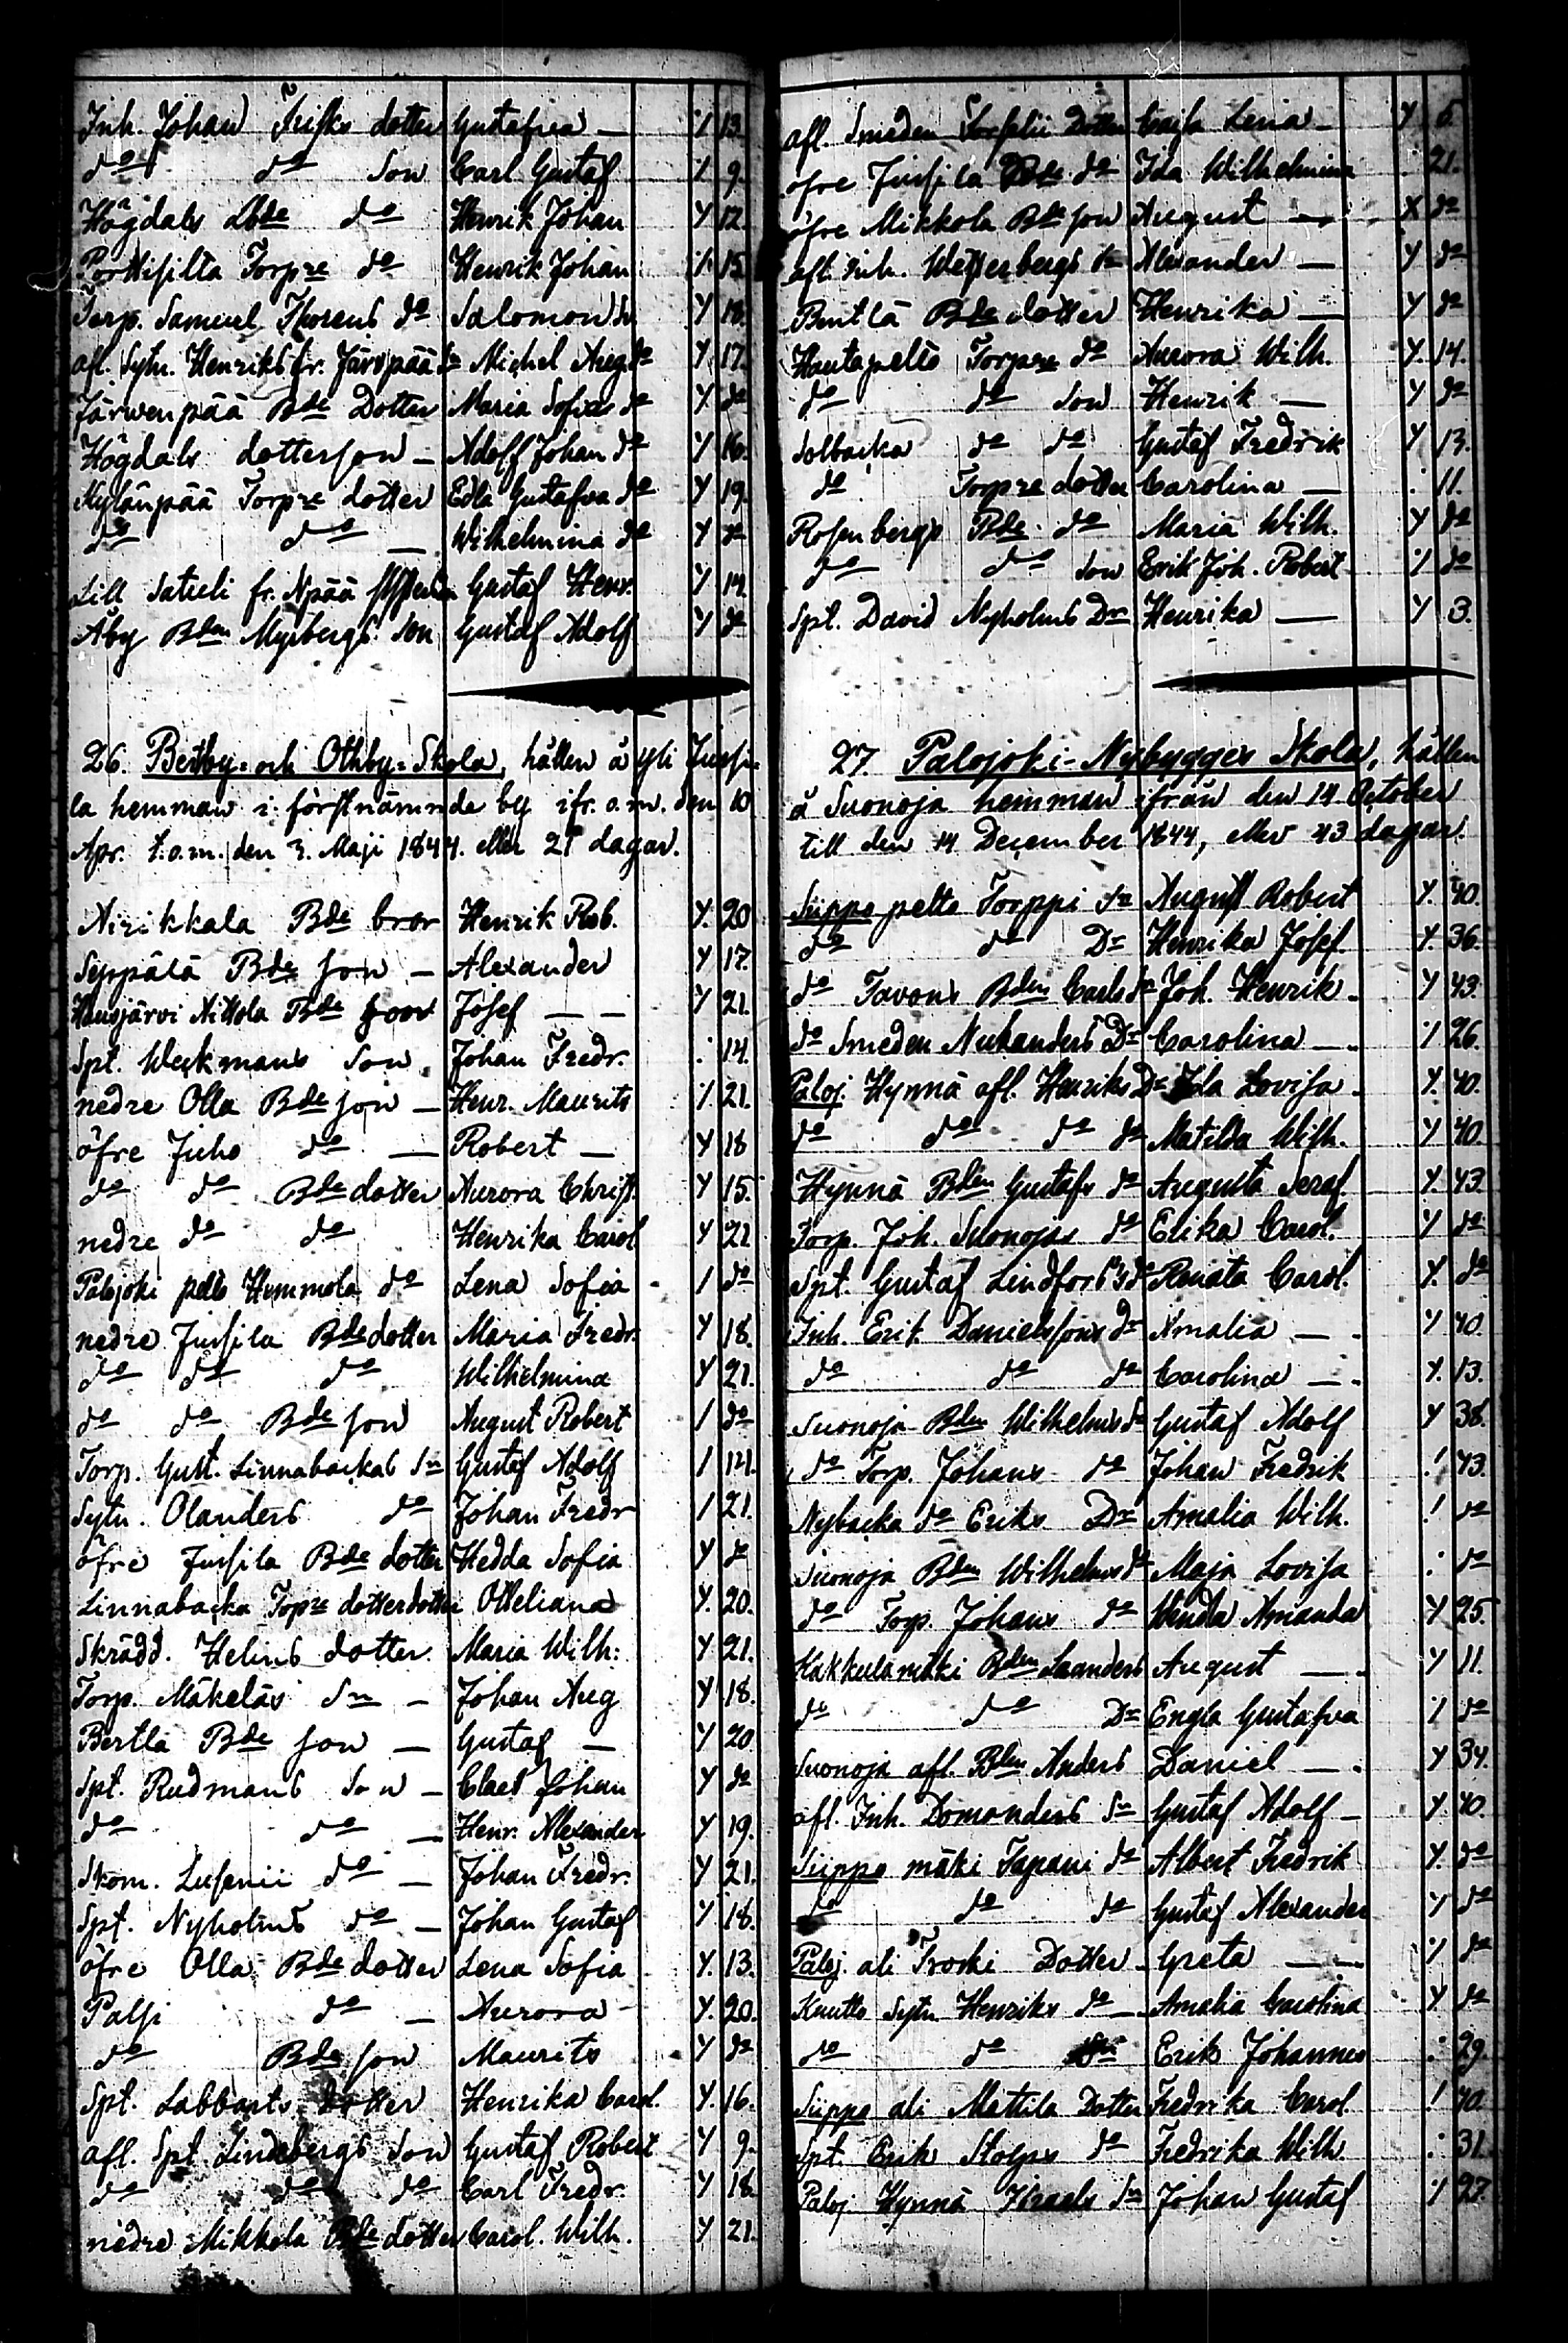 Inh. Johan Frisks dotter Gustafva — 13
do do Son Carl Gustaf 9.
Högdals Bde do Henrik Johan Y 12.
Porttisilta Torpre do Henrik Johan 15
Torp. Samuel Thorens do Salomon Y 18.
afl. Sytn. Henriks fr. Järvpää Sn Michel Aug. do Y 17.
Järwenpää Bde Dotter Maria Sofia do Y do
Högdals dotterson — Adolf Johan do Y 16.
Kylänpää Torpre dotter Edla Gustafva do Y 19.
do do — Wilhelmina do Y do
Lill Satuli fr. Npää Gustaf Henr. Y 14
Åby Bden Myrbergs Son Gustaf Adolf Y do
26. Bertby- och Othby-Skola, hållen å Yli Jussi-
la hemman i förstnämnde by ifr. o.m. den 10
Apr. t.o.m. den 3. Maji 1844. eller 21 dagar.
Nirikkala Bde bror Henrik Rob. Y. 20
Seppälä Bde Son — Alexander Y 17.
Hausjärvi Nikkola Bde Josef — — Y 21.
Spt. Weckmans Son Johan Fredr. 14.
nedre Olla Bde Son — Henr. Maurits 21.
öfre Juho do — Robert — Y 18
do do Bde dotter Aurora Christ. Y 15.
nedre do do Henrika Carol Y 21
Palojoki pelto Hemmola do Lena Sofia / do
nedre Jussila Bde dotter Maria Fredr. Y 18.
do do do Wilhelmina Y 21.
do do Bde Son August Robert / do
Torp. Gust. Linnabackas Sn Gustaf Adolf / 14.
Sytn. Olanders do Johan Fredr / 21.
öfre Jussila Bde dotter Hedda Sofia Y do
Linnabacka Topre dotterdotter Otteliana Y. 20.
Skrädd. Helins dotter Maria Wilh: Y 21.
Torp. Mäkeläs Sn — Johan Aug Y 18.
Bertla Bde Son — Gustaf — Y 20
Spt. Rudmans Son — Claes Johan Y do
do do — Henr. Alexander Y 19.
Skom. Lusenii do — Johan Fredr. Y 21.
Spt. Nyholms do — Johan Gustaf Y 18.
öfre Olla Bde dotter Lena Sofia Y. 13.
Palsi do — Aurora Y. 20.
do Bde Son Maurits Y do
Spt. Labbarts dotter Henrika Carol. Y. 16.
afl. Spt. Lindebergs Son Gustaf Robert Y 9.
do do do Carl Fredr. Y 18.
nedre Mikkola Bde dotter Carol. Wilh. Y. 21.
afl. Smeden Dotter Cajsa Lena — Y 5.
öfre Jussila Bde do Ida Wilhelmina 21.
öfre Mikkola Bde Son August — X do
afl. Inh. Wetterbergs Sn Alexander — Y do
Bentlä Bde dotter Henrika — Y do
Hautapelto Torpre do Aurora Wilh. Y. 14.
do do Son Henrik — Y do
Solbacka do do Gustaf Fredrik Y 13.
do Torpre dotter Carolina — 11.
Rosenbergs Bde do Maria Wilh. Y do
do do Son Erik Joh. Robert do
Spt. David Nyholms Dr Henrika — Y 3.
27. Palojoki-Nybygges Skola, hållen
å Suonoja hemman ifrån den 14 October
till den 14 December 1844, eller 43 dagar.
Siippo pelto Torppi Sn August Robert Y. 40.
do do Dr Henrika Josef. Y. 36.
do Tavons Bden Carls Sn Joh. Henrik. Y 43.
do Smeden Nukanders Dr Carolina — 26.
Paloj. Hynnä afl. Henriks Dr Ida Lovisa Y. 40.
do do do do Matilda Wilh. Y 40.
Hynnä Bden Gustafs do Augusta Seraf. Y. 43.
Torp. Joh. Suonojas do Erika Carol. Y do
Spt. Gustaf Lindfors's do Renata Carol. Y. do
Inh. Erik Danielssons do Amalia — Y 40.
do do do Carolina — Y. 13.
Suonoja Bden Wilhelms Sn Gustaf Adolf Y 38.
do Torp. Johans do Johan Fredrik 43.
Nybacka do Eriks Dr Amalia Wilh. do
Suonoja Bden Wilhelms do Maja Lovisa do
do Torp. Johans do Wenda Amanda Y 25.
Kakkulamäki Bden Leanders August — Y 11.
do do Dr Engla Gustafva do
Suonoja afl. Bden Anders Daniel — Y 34.
afl. Inh. Domanders Sn Gustaf Adolf — Y. 40.
Siippo mäki Tapani do Albert Fredrik Y. do
do do do Gustaf Alexander Y do
Paloj. ali Frocki Dotter Greta — do
Knutto Sytn Henriks do — Amalia Carolina Y do
do do Sn Erik Johannes 29.
Siippo ali Mattila Dotter Fredrika Carol 40
Spt. Erik Stolps do Fredrika Wilh. 31
Paloj. Hynnä Israels Sn Johan Gustaf 27